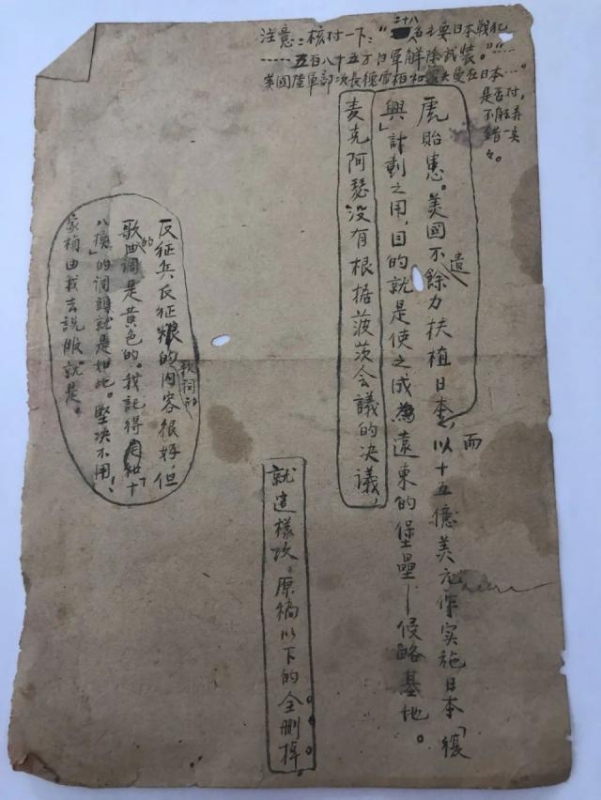 注意：核对一下：“二十八名主要日本战犯
……五百八十五万日军解除武装。”“……
美國陸軍部次長德雷柏……在日本…”
是否对，
不能弄
錯一
虎貽患。美國不遺餘力扶植日本，而以十五億美元作实施日本「復
興」計劃之用，目的就是使之成為遠東的堡壘—侵略基地。
麦克阿瑟没有根据菠茨会議的决議，
就這樣改。原稿以下的全刪掉。
反征兵、反征粮的歌詞的內容很好，但
歌曲的詞是黄色的。我記得
八摸」的词調就是如此。堅决不用！
蒙楠由我去説服就是。